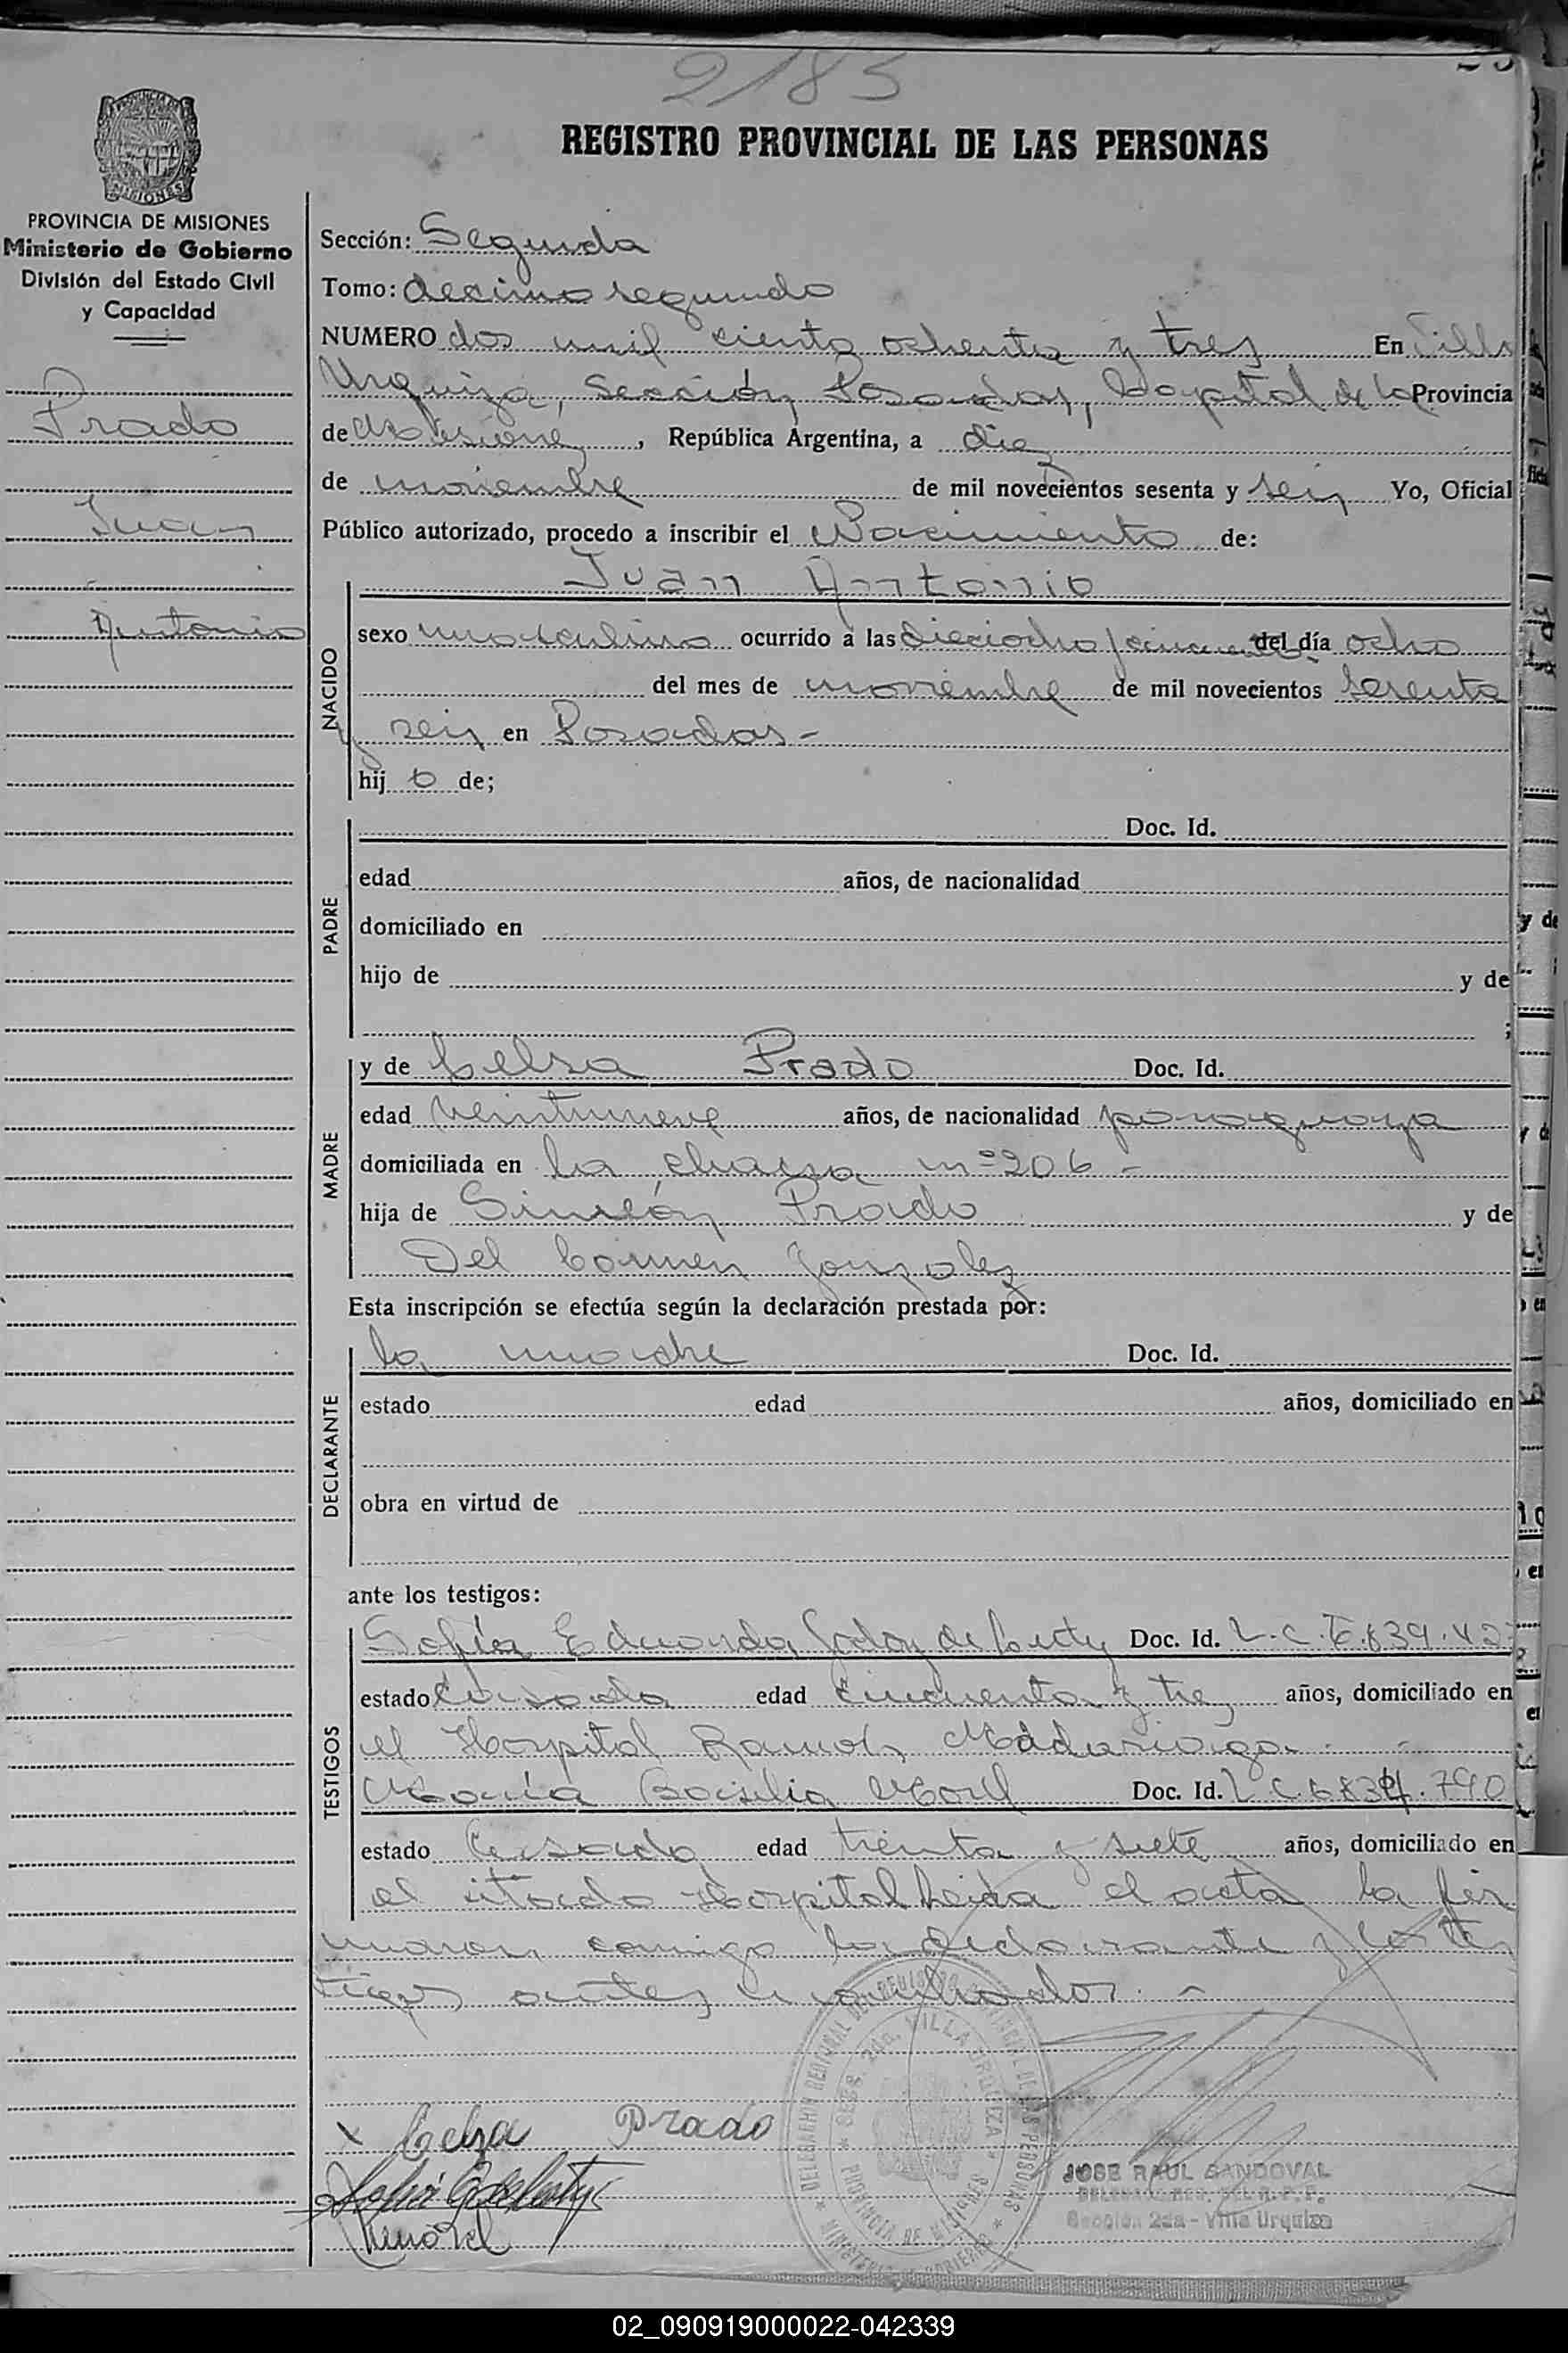 2183
REGISTRO PROVINCIAL DE LAS PERSONAS
MISIONES
PROVINCIA DE MISIONES
Ministerio de Gobierno
División del Estado Civil
y Capacidad
Prado
Juan
Antonio
Sección: Segunda
Tomo: decimo segundo
NUMERO dos mil ciento ochenta y tres En Villa
Urquiza, Sección Posadas, Capital de la Provincia
de Misiones, República Argentina, a diez
de noviembre de mil novecientos sesenta y seis Yo, Oficial
Público autorizado, procedo a inscribir el Nacimiento de:
Juan Antonio
NACIDO
sexo masculino ocurrido a las dieciocho y cincuenta del día ocho
del mes de noviembre de mil novecientos sesenta
y seis en Posadas-
hij o de;
PADRE
Doc. Id.
edad años, de nacionalidad
domiciliado en
hijo de y de
;
MADRE
y de Celsa Prado Doc. Id.
edad veintinueve años, de nacionalidad paraguaya
domiciliada en la chacra nº 206 -
hija de Simeón Prado y de
Del Carmen Gonzalez
Esta inscripción se efectúa según la declaración prestada por:
DECLARANTE
la madre Doc. Id.
estado edad años, domiciliado en
obra en virtud de
ante los testigos:
TESTIGOS
Sofía Eduarda Godoy de Doc. Id. L.C.
estado casada edad cincuenta y tres años, domiciliado en
el Hospital Ramón Madariaga
María Basilia Morel Doc. Id. L.C. 790
estado casada edad treinta y siete años, domiciliado en
el citado Hospital Leida el acta la fir
maron conmigo la declarante y los tes
tigos antes nombrados. -
x Celsa Prado
Morel
DELEGADO REGIONAL DEL REGISTRO PROVINCIAL DE LAS PERSONAS
SECC. 2da. VILLA URQUIZA
PROVINCIA DE MISIONES
MINISTERIO DE GOBIERNO
JOSE RAUL SANDOVAL
DELEGADO REG. DEL R. P. P.
Sección 2da - Villa Urquiza
02_090919000022-042339